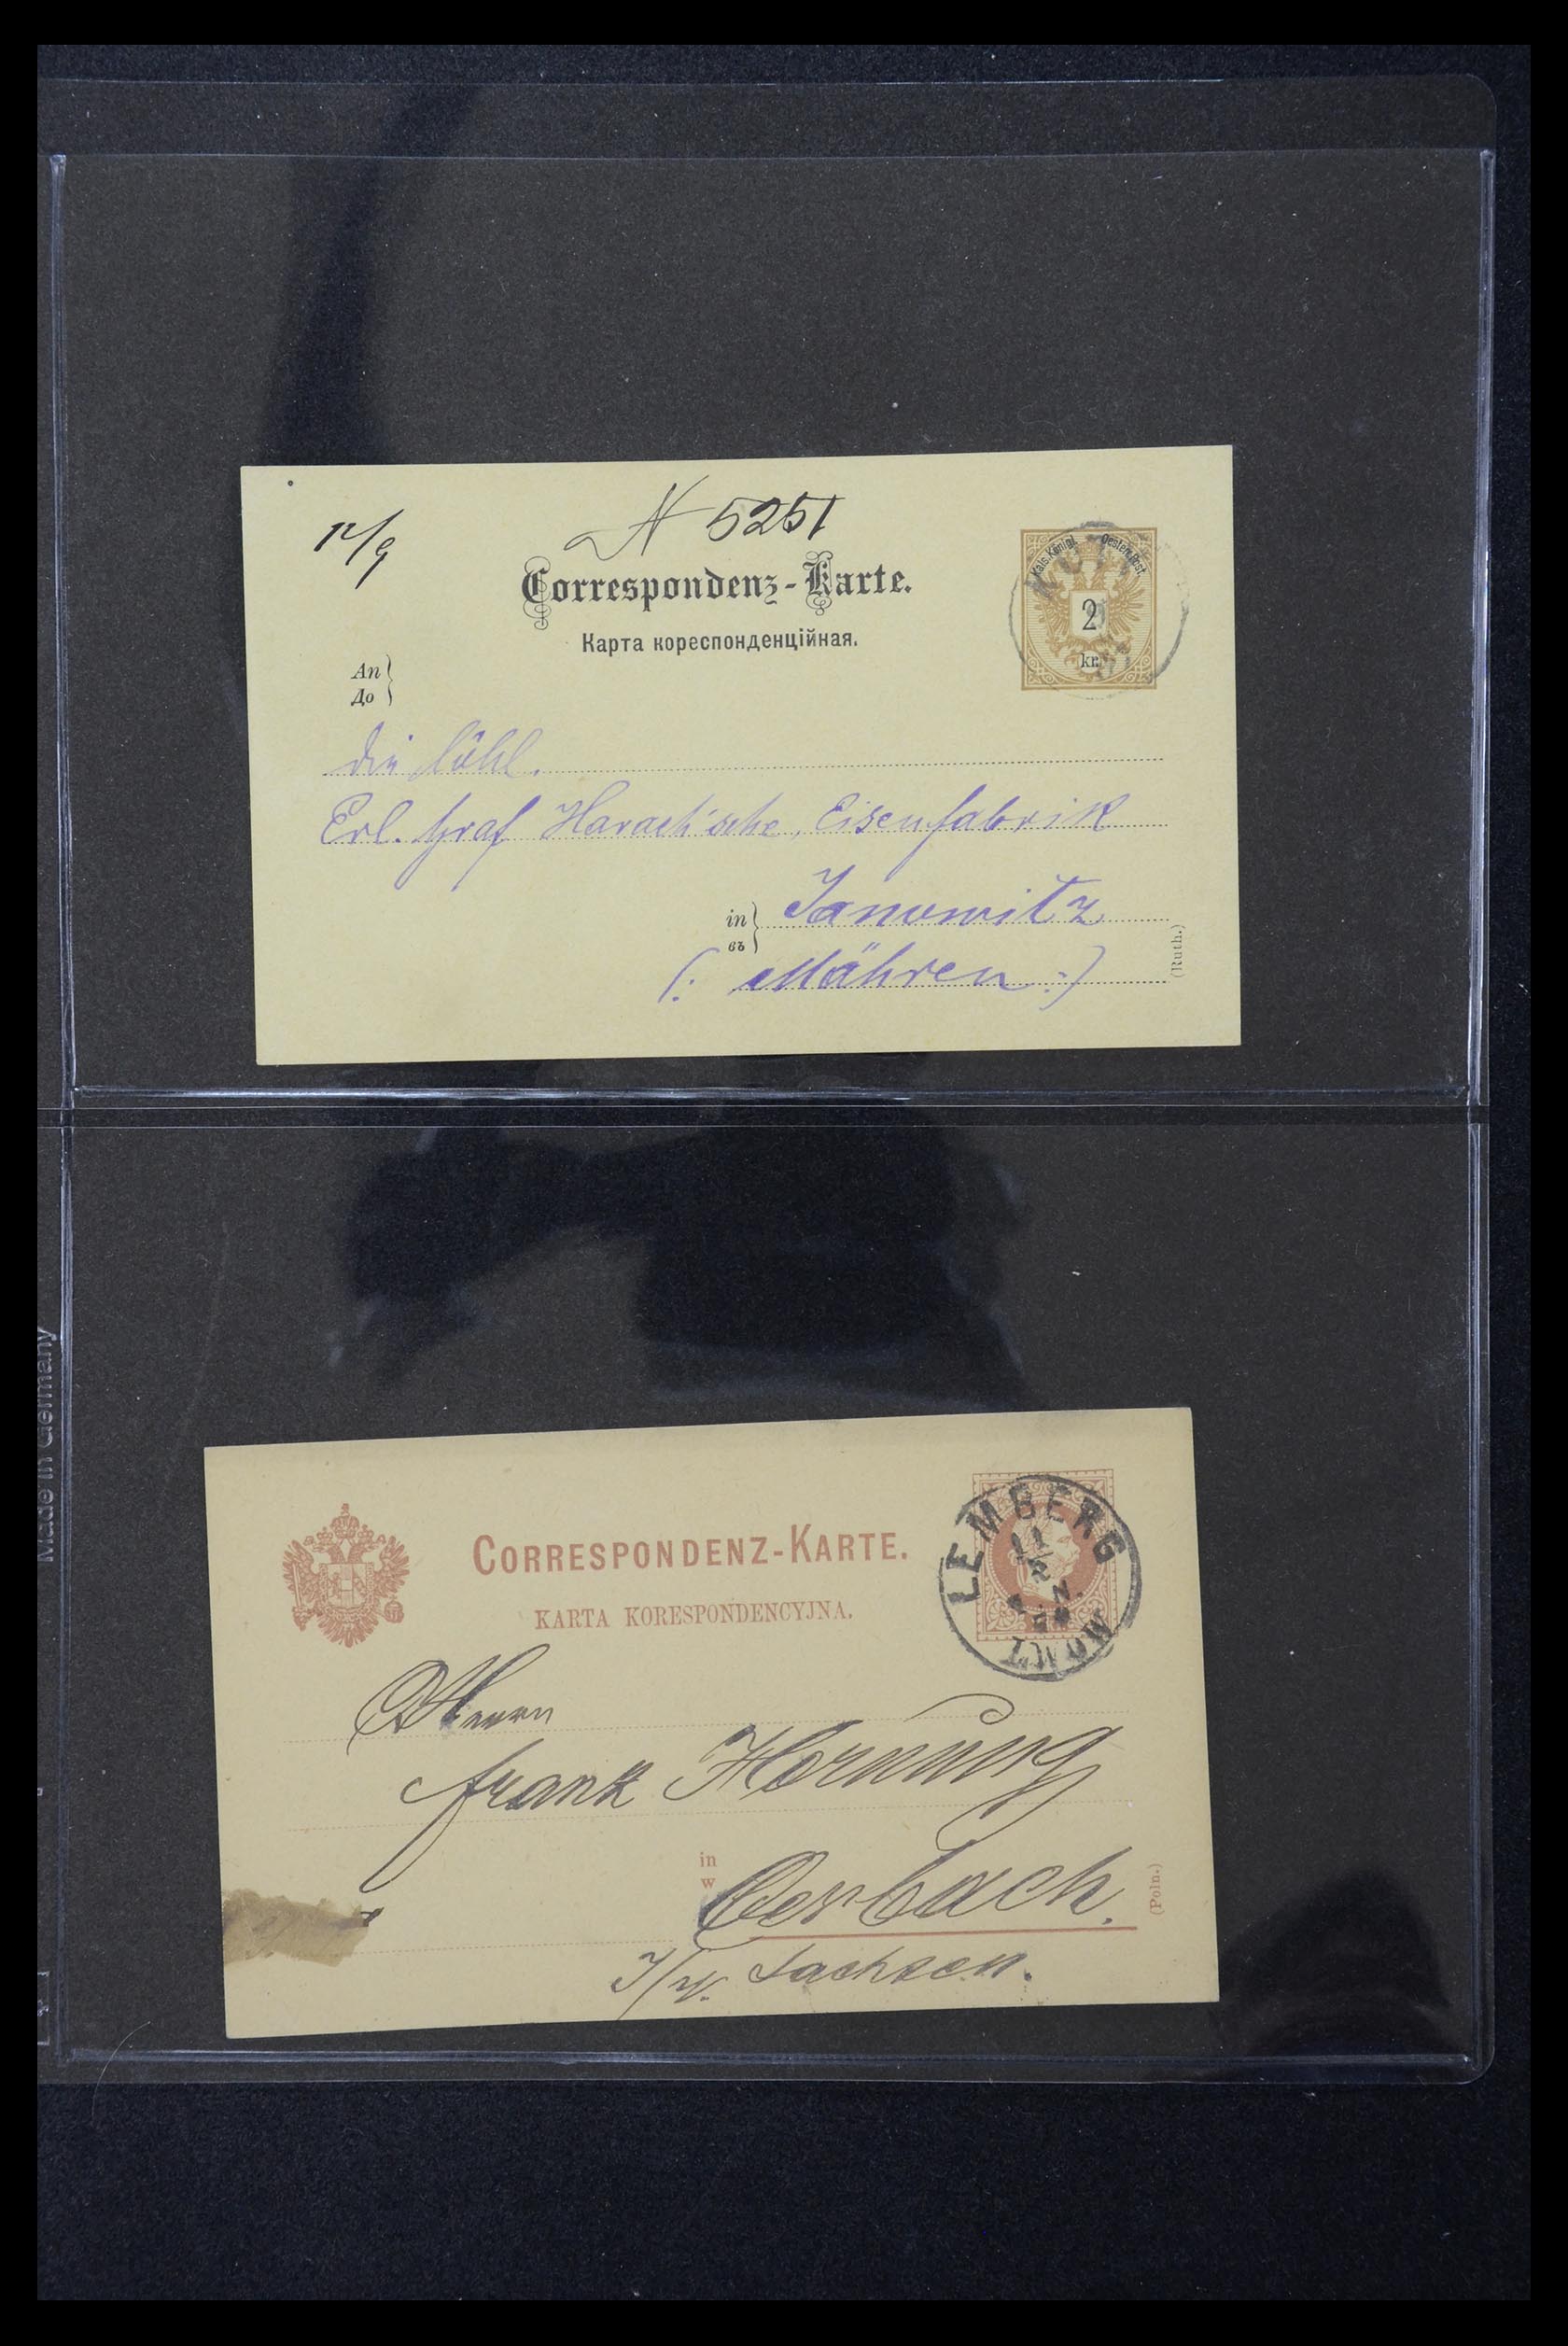 12/9
N 5251
Correspondenz-Karte.
Карта кореспонденційная.
Kais. Königl. Oesterr. Post.
2
kr.
An
До
Die löbl.
Erl. Graf Harach'sche, Eisenfabrik
in
въ
Janowitz
(: Mähren :)
(Ruth.)
Made in Germany
CORRESPONDENZ-KARTE.
KARTA KORESPONDENCYJNA.
LEMBERG
11
2
N.
Herrn
Frank Hornung
in
w
Oerbach.
(Poln.)
Sachsen.